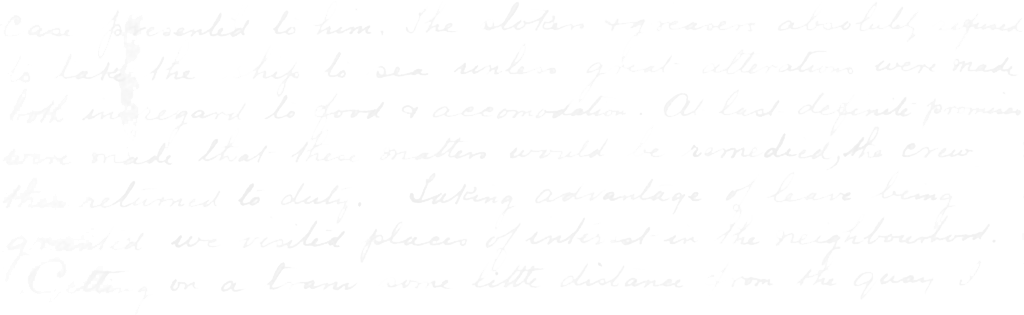 case presented to him. The stokers & greasers absolutely refused
to take the ship to sea unless great alterations were made
both in regard to food & accomodation. At last definite promises
were made that these matters would be remedied, the crew
then returned to duty. Taking advantage of leave being
granted we visited places of interest in the neighbourhood.
Getting on a tram some little distance from the quay I